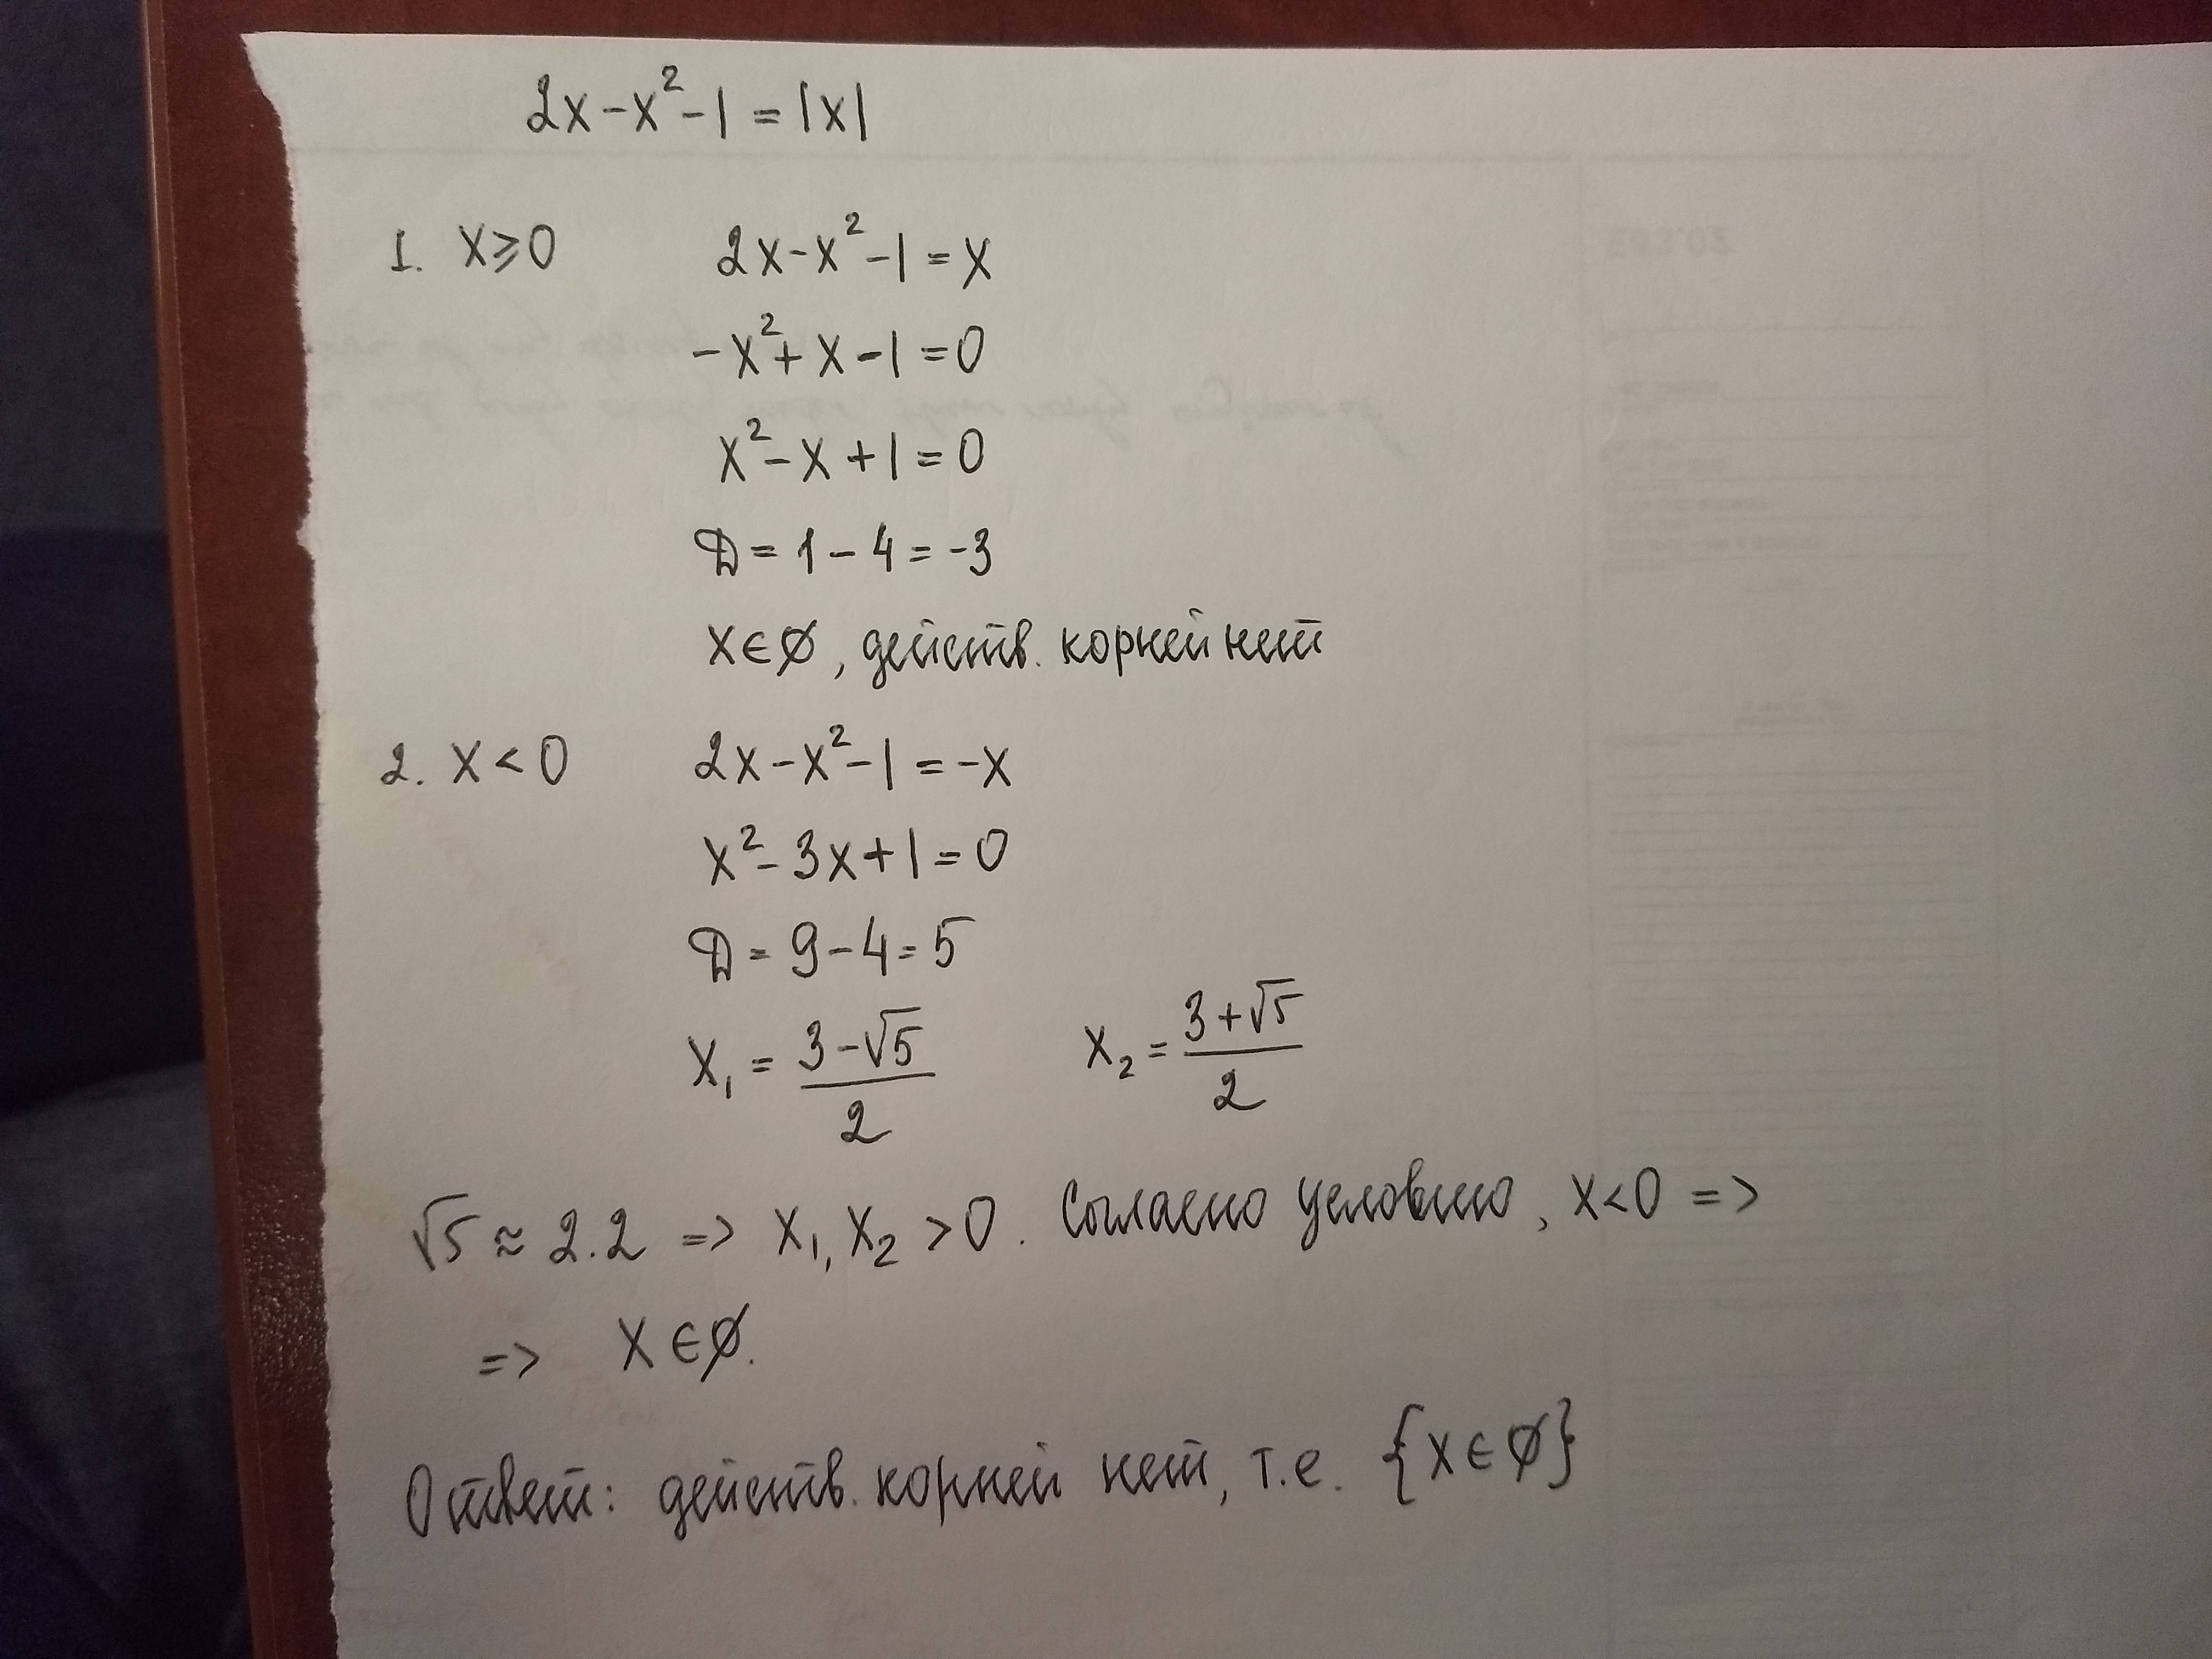 2x-x²-1=|x|
1. x⩾0 2x-x²-1=x
-x²+x-1=0
x²-x+1=0
D=1-4=-3
x∈∅, действ. корней нет
2. x<0 2x-x²-1=-x
x²-3x+1=0
D=9-4=5
x₁=(3-√5)/2 x₂=(3+√5)/2
√5≈2.2 => x₁, x₂>0. Согласно условию, x<0 =>
=> x∈∅.
Ответ: действ. корней нет, т.е. {x∈∅}